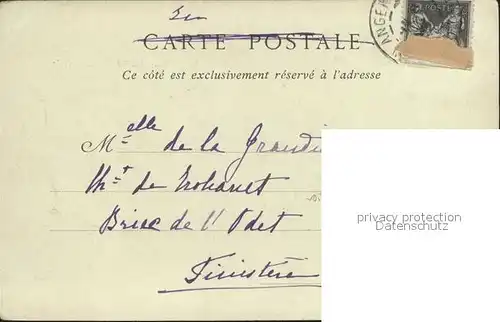 CARTE POSTALE
Ce côté est exclusivement réservé à l'adresse
ANGE
POSTE
Melle de la Grandi
Cht de
Briec de l'Odet
Finistère
privacy protection
Datenschutz